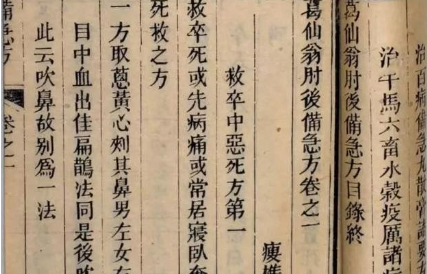 治百病備急丸散膏諸要
治牛馬六畜水穀疫厲諸病
葛仙翁肘後備急方目錄終
葛仙翁肘後備急方卷之一
救卒中惡死方第一
救卒死或先病痛或常居寢臥奄
死救之方
一方取葱黃心刺其鼻男左女右
目中血出佳扁鵲法同是後吹
此云吹鼻故別爲一法
備急方
卷之一